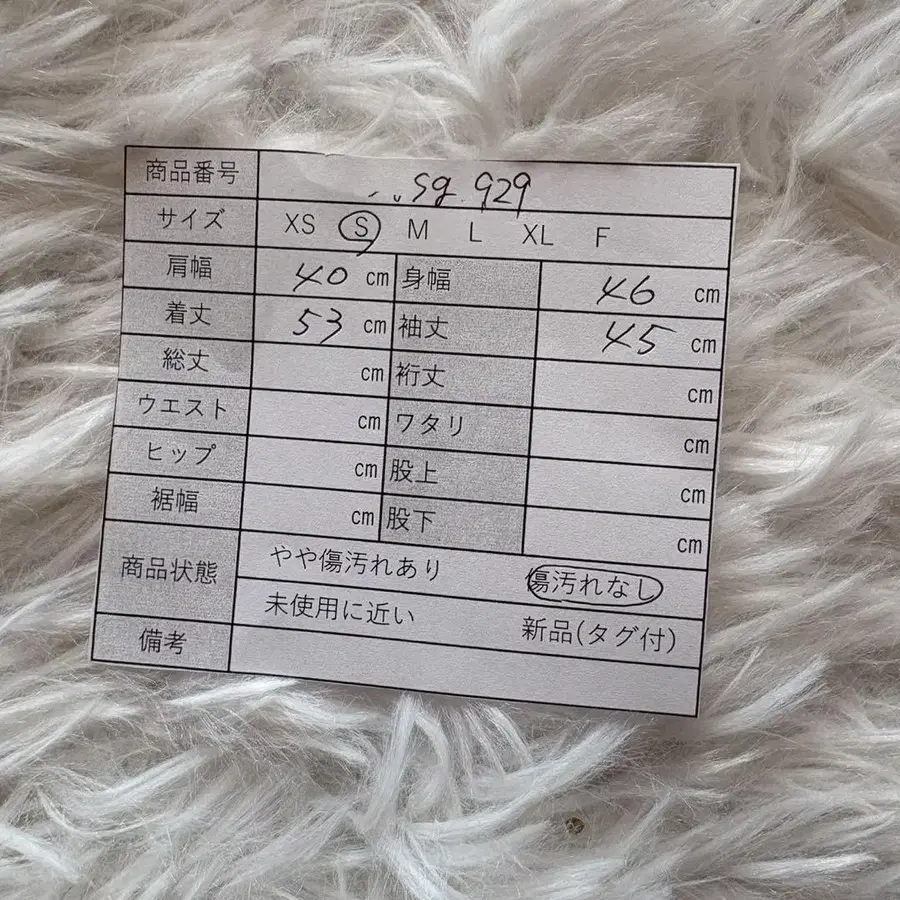 商品番号 sg.929
サイズ XS S M L XL F
肩幅 40 cm 身幅 46 cm
着丈 53 cm 袖丈 45 cm
総丈 cm 裄丈 cm
ウエスト cm ワタリ cm
ヒップ cm 股上 cm
裾幅 cm 股下 cm
商品状態 やや傷汚れあり 傷汚れなし
未使用に近い 新品(タグ付)
備考